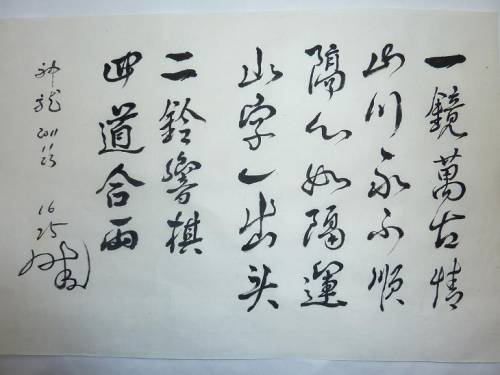 一鏡萬古情
山川永不順
隔心如隔運
山字一出头
二鈴響棋
四道合雨
神龙
2011
16
25